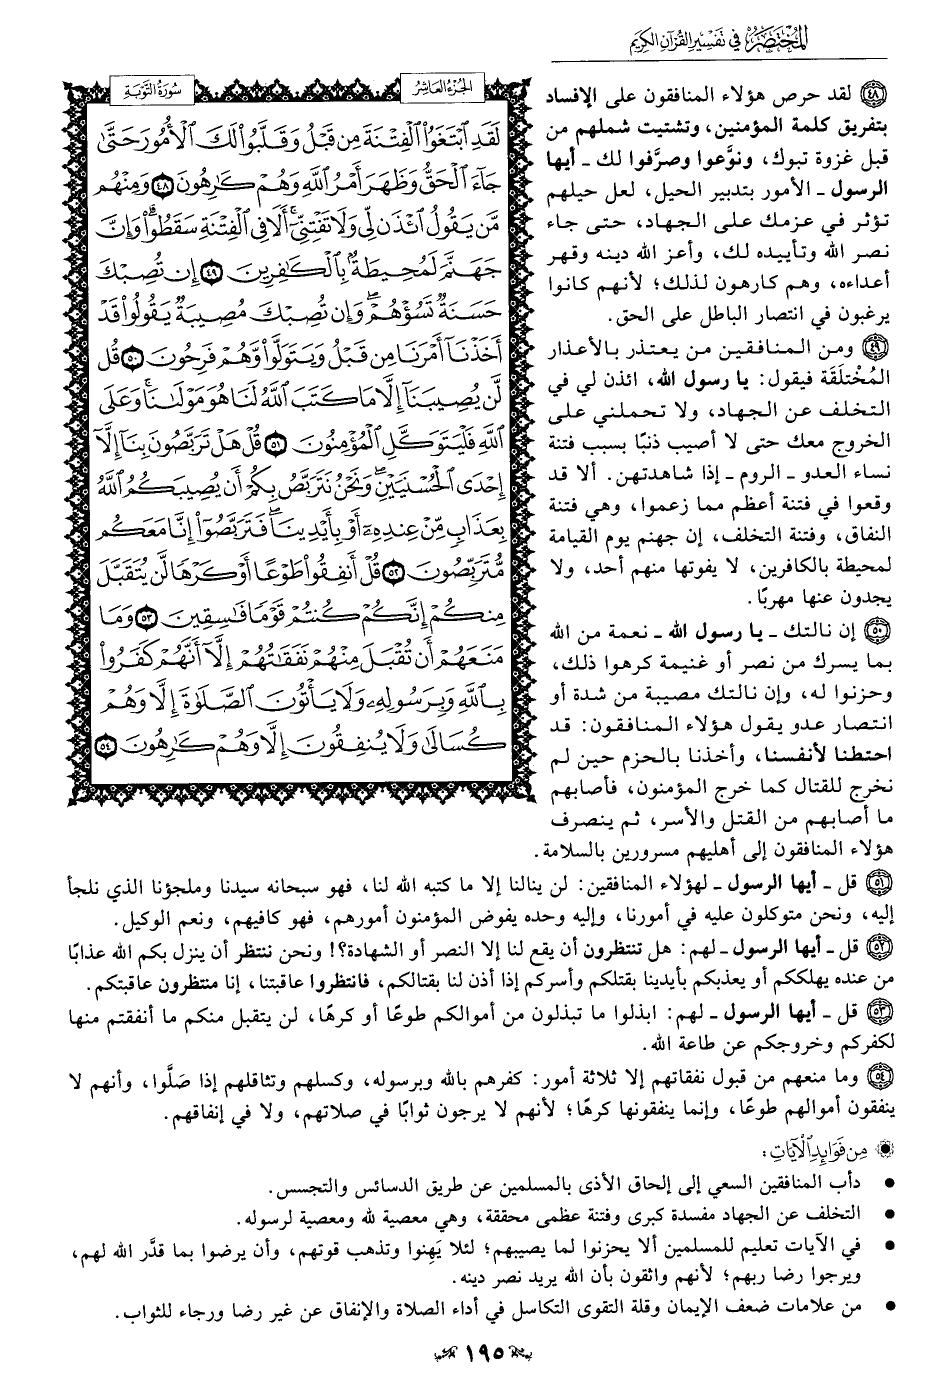 المختصر في تفسير القرآن الكريم
الجزء العاشر
سورة التوبة
لَقَدِ ٱبْتَغَوُا۟ ٱلْفِتْنَةَ مِن قَبْلُ وَقَلَّبُوا۟ لَكَ ٱلْأُمُورَ حَتَّىٰ
جَآءَ ٱلْحَقُّ وَظَهَرَ أَمْرُ ٱللَّهِ وَهُمْ كَـٰرِهُونَ ٤٨ وَمِنْهُم
مَّن يَقُولُ ٱئْذَن لِّى وَلَا تَفْتِنِّىٓ ۚ أَلَا فِى ٱلْفِتْنَةِ سَقَطُوا۟ ۗ وَإِنَّ
جَهَنَّمَ لَمُحِيطَةٌۢ بِٱلْكَـٰفِرِينَ ٤٩ إِن تُصِبْكَ
حَسَنَةٌ تَسُؤْهُمْ ۖ وَإِن تُصِبْكَ مُصِيبَةٌ يَقُولُوا۟ قَدْ
أَخَذْنَآ أَمْرَنَا مِن قَبْلُ وَيَتَوَلَّوا۟ وَّهُمْ فَرِحُونَ ٥٠ قُل
لَّن يُصِيبَنَآ إِلَّا مَا كَتَبَ ٱللَّهُ لَنَا هُوَ مَوْلَىٰنَا ۚ وَعَلَى
ٱللَّهِ فَلْيَتَوَكَّلِ ٱلْمُؤْمِنُونَ ٥١ قُلْ هَلْ تَرَبَّصُونَ بِنَآ إِلَّآ
إِحْدَى ٱلْحُسْنَيَيْنِ ۖ وَنَحْنُ نَتَرَبَّصُ بِكُمْ أَن يُصِيبَكُمُ ٱللَّهُ
بِعَذَابٍ مِّنْ عِندِهِۦٓ أَوْ بِأَيْدِينَا ۖ فَتَرَبَّصُوٓا۟ إِنَّا مَعَكُم
مُّتَرَبِّصُونَ ٥٢ قُلْ أَنفِقُوا۟ طَوْعًا أَوْ كَرْهًا لَّن يُتَقَبَّلَ
مِنكُمْ ۖ إِنَّكُمْ كُنتُمْ قَوْمًا فَـٰسِقِينَ ٥٣ وَمَا
مَنَعَهُمْ أَن تُقْبَلَ مِنْهُمْ نَفَقَـٰتُهُمْ إِلَّآ أَنَّهُمْ كَفَرُوا۟
بِٱللَّهِ وَبِرَسُولِهِۦ وَلَا يَأْتُونَ ٱلصَّلَوٰةَ إِلَّا وَهُمْ
كُسَالَىٰ وَلَا يُنفِقُونَ إِلَّا وَهُمْ كَـٰرِهُونَ ٥٤
٤٨ لقد حرص هؤلاء المنافقون على الإفساد
بتفريق كلمة المؤمنين، وتشتيت شملهم من
قبل غزوة تبوك، ونوَّعوا وصرَّفوا لك ـ أيها
الرسول ـ الأمور بتدبير الحيل، لعل حيلهم
تؤثر في عزمك على الجهاد، حتى جاء
نصر الله وتأييده لك، وأعز الله دينه وقهر
أعداءه، وهم كارهون لذلك؛ لأنهم كانوا
يرغبون في انتصار الباطل على الحق.
٤٩ ومن المنافقين من يعتذر بالأعذار
المُخْتلَقَة فيقول: يا رسول الله، ائذن لي في
التخلف عن الجهاد، ولا تحملني على
الخروج معك حتى لا أصيب ذنبًا بسبب فتنة
نساء العدو ـ الروم ـ إذا شاهدتهن. ألا قد
وقعوا في فتنة أعظم مما زعموا، وهي فتنة
النفاق، وفتنة التخلف، إن جهنم يوم القيامة
لمحيطة بالكافرين، لا يفوتها منهم أحد، ولا
يجدون عنها مهربًا.
٥٠ إن نالتك ـ يا رسول الله ـ نعمة من الله
بما يسرك من نصر أو غنيمة كرهوا ذلك،
وحزنوا له، وإن نالتك مصيبة من شدة أو
انتصار عدو يقول هؤلاء المنافقون: قد
احتطنا لأنفسنا، وأخذنا بالحزم حين لم
نخرج للقتال كما خرج المؤمنون، فأصابهم
ما أصابهم من القتل والأسر، ثم ينصرف
هؤلاء المنافقون إلى أهليهم مسرورين بالسلامة.
٥١ قل ـ أيها الرسول ـ لهؤلاء المنافقين: لن ينالنا إلا ما كتبه الله لنا، فهو سبحانه سيدنا وملجؤنا الذي نلجأ
إليه، ونحن متوكلون عليه في أمورنا، وإليه وحده يفوض المؤمنون أمورهم، فهو كافيهم، ونعم الوكيل.
٥٢ قل ـ أيها الرسول ـ لهم: هل تنتظرون أن يقع لنا إلا النصر أو الشهادة؟! ونحن ننتظر أن ينزل بكم الله عذابًا
من عنده يهلككم أو يعذبكم بأيدينا بقتلكم وأسركم إذا أذن لنا بقتالكم، فانتظروا عاقبتنا، إنا منتظرون عاقبتكم.
٥٣ قل ـ أيها الرسول ـ لهم: ابذلوا ما تبذلون من أموالكم طوعًا أو كرهًا، لن يتقبل منكم ما أنفقتم منها
لكفركم وخروجكم عن طاعة الله.
٥٤ وما منعهم من قبول نفقاتهم إلا ثلاثة أمور: كفرهم بالله وبرسوله، وكسلهم وتثاقلهم إذا صَلَّوا، وأنهم لا
ينفقون أموالهم طوعًا، وإنما ينفقونها كرهًا؛ لأنهم لا يرجون ثوابًا في صلاتهم، ولا في إنفاقهم.
من فوائد الآيات:
• دأب المنافقين السعي إلى إلحاق الأذى بالمسلمين عن طريق الدسائس والتجسس.
• التخلف عن الجهاد مفسدة كبرى وفتنة عظمى محققة، وهي معصية لله ومعصية لرسوله.
• في الآيات تعليم للمسلمين ألا يحزنوا لما يصيبهم؛ لئلا يَهِنوا وتذهب قوتهم، وأن يرضوا بما قدَّر الله لهم،
ويرجوا رضا ربهم؛ لأنهم واثقون بأن الله يريد نصر دينه.
• من علامات ضعف الإيمان وقلة التقوى التكاسل في أداء الصلاة والإنفاق عن غير رضا ورجاء للثواب.
١٩٥